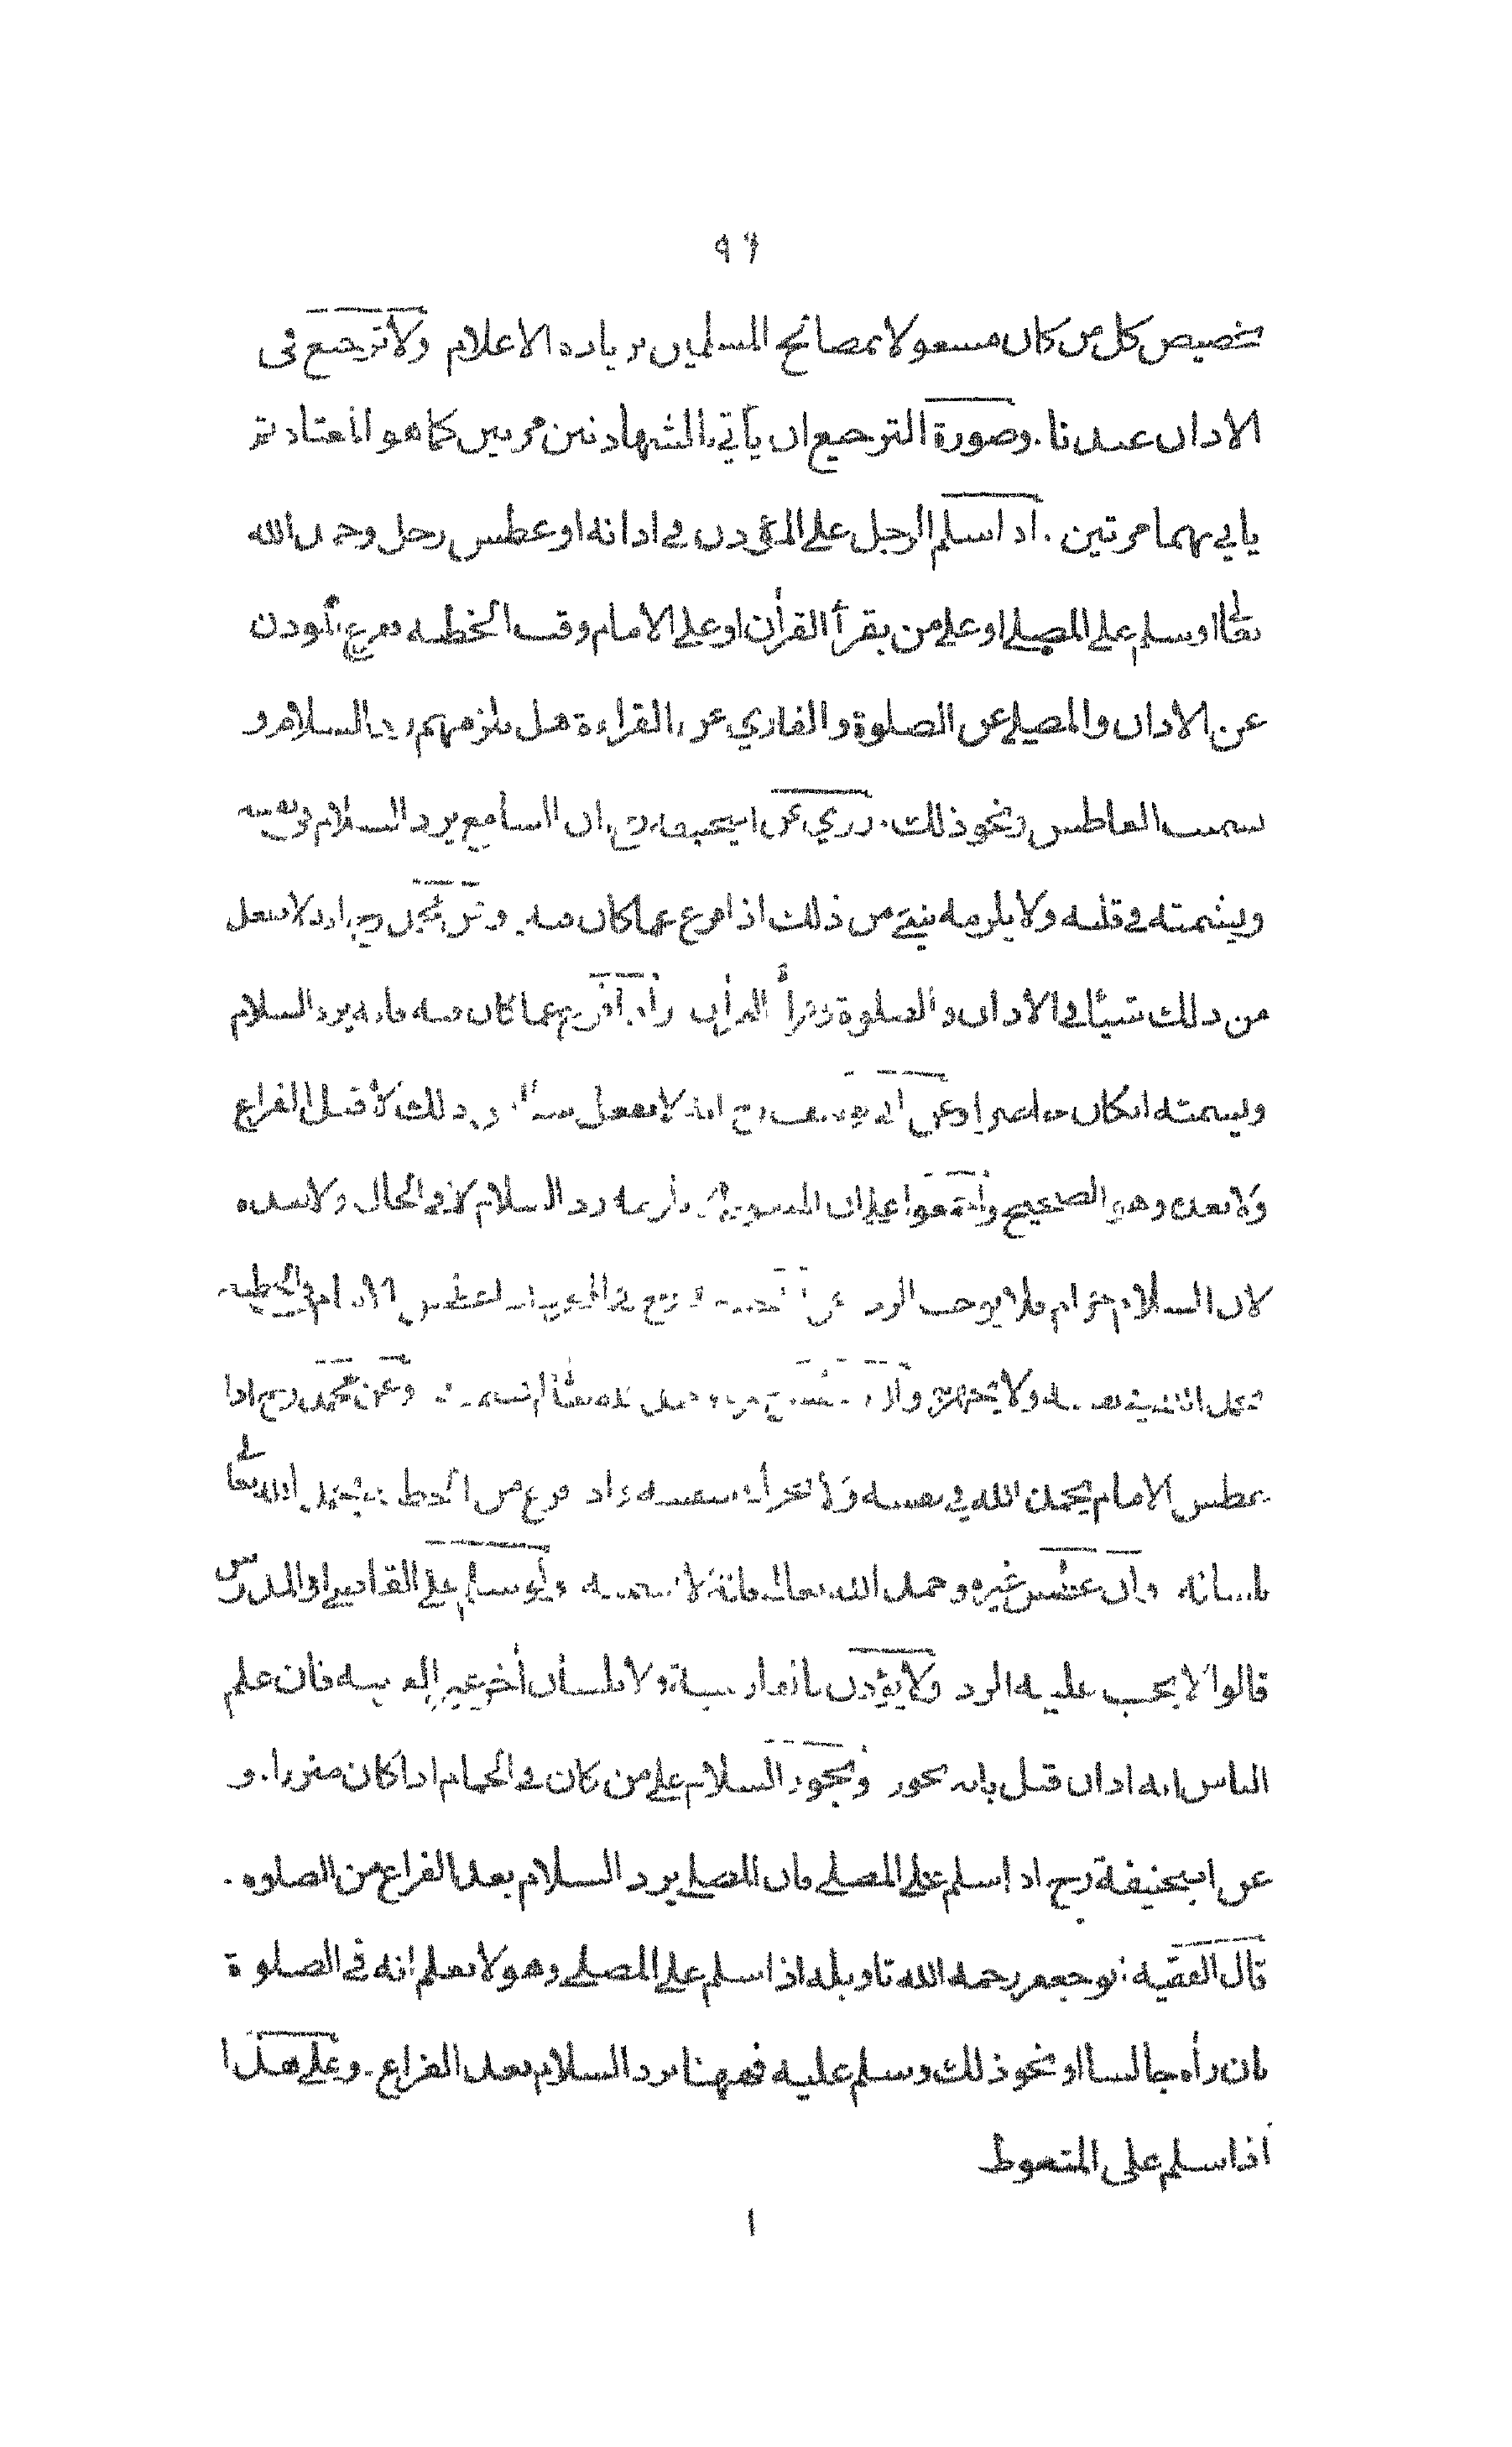 ٩٦
تخصيص كل من كان مشغولا بمصالح المسلمين بزيادة الاعلام ولا ترجيع فى
الاذان عندنا . وصورة الترجيع ان يأتي بالشهادتين مرتين كما هو المعتاد ثم
يأتي بهما مرتين . اذا سلم الرجل على المؤذن في اذانه او عطس رجل وحمد الله
تعالى او سلم على المصلي او على من يقرأ القرآن او على الامام وقت الخطبة ففرغ المؤذن
عن الاذان والمصلي عن الصلوة والقاري عن القراءة هل يلزمهم رد السلام و
تشميت العاطس ونحو ذلك . روي عن ابيحنيفة رح ان السامع يرد السلام في نفسه
ويشمته في قلبه ولا يلزمه شيئ من ذلك اذا فرغ عما كان فيه . وعن محمد رح انه لا يفعل
من ذلك شيئا في الاذان والصلوة وقرأة القرآن واذا فرغ عما كان فيه فانه يرد السلام
ويشمته ان كان حاضرا وعن ابي يوسف رح انه لا يفعل شيئا من ذلك لا قبل الفراغ
ولا بعده وهو الصحيح واتفقوا على ان المتغوط لا يلزمه رد السلام لا في الحال ولا بعده
لان السلام حرام فلا يوجب الرد عن رح لعطس الامام في الخطبة
نفسه ولا يجهر وعن محمد رح اذا
عطس الامام يحمد الله في نفسه ولا يحرك شفتيه واذا فرغ من الخطبة يحمد الله تعالى
بلسانه وان عطس غيره وحمد الله تعالى فانه لا يشمته ولو سلم على القاضي او المدرس
قالوا لا يجب عليه الرد ولا يؤذن بالفارسية ولا بلسان آخر غير العربية فان علم
الناس انه اذان قيل بانه يجوز ويجوز السلام على من كان في الحمام اذا كان متزرا . و
عن ابيحنيفة رح اذا سلم على المصلي فان المصلي يرد السلام بعد الفراغ من الصلوة .
قال الفقيه ابو جعفر رحمه الله تاويله اذا سلم على المصلي وهو لا يعلم انه في الصلوة
بان رأه جالسا او نحو ذلك وسلم عليه فههنا يرد السلام بعد الفراغ . وعلى هذا
اذا سلم على المتغوط
١